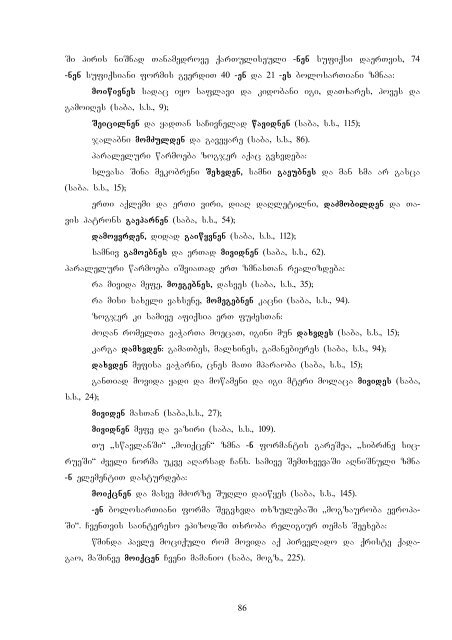 ში პირის ნიშნად თანამედროვე ქართულისეული -ნენ სუფიქსი დაერთვის, 74
-ნენ სუფიქსიანი ფორმის გვერდით 40 -ენ და 21 -ეს ბოლოსართიანი ზმნაა:
მოიწივნეს სადაც იყო საფლავი და კიდობანი იგი, დათხარეს, პოვეს და
გამოიღეს (საბა, ს.ს., 9);
შეიცილნენ და ყადთან საჩივნელად წავიდნენ (საბა, ს.ს., 115);
ჯალაბნი მომძულდენ და გავეყარე (საბა, ს.ს., 86).
პარალელური წარმოება ზოგჯერ აქაც გვხვდება:
სლვასა შინა მეკობრენი შეხვდენ, სამნი გაეუბნეს და მან ხმა არ გასცა
(საბა. ს.ს., 15);
ერთი აქლემი და ერთი ვირი, დიაღ დაღლეტილნი, დაძმობილდენ და თა-
ვის პატრონს გაეპარნენ (საბა, ს.ს., 54);
დამოყვრდენ, დიდად გაიწყვნენ (საბა, ს.ს., 112);
სამნივ გამოებნეს და ერთად მივიდნენ (საბა, ს.ს., 62).
პარალელური წარმოება იშვიათად ერთ ზმნასთან რეალიზდება:
რა მივიდა მეფე, მოეგებნეს, დასვეს (საბა, ს.ს., 35);
რა მისი სახელი ვახსენე, მომეგებნენ კაცნი (საბა, ს.ს., 94).
ზოგჯერ კი სამივე აფიქსია ერთ ფუძესთან:
ძოღან რომელთა ვაჭართა მოეცათ, იგინი მუნ დახვდეს (საბა, ს.ს., 15);
კარგა დამხვდენ: გამათბეს, მალხინეს, გამანებივრეს (საბა, ს.ს., 94);
დახვდენ მეფისა ვაჭარნი, ცნეს მათი მპარაობა (საბა, ს.ს., 15);
განთიად მოვიდა ყადი და მოწამენი და იგი მტერი მოლაცა მივიდეს (საბა,
ს.ს., 24);
მივიდენ მასთან (საბა,ს.ს., 27);
მივიდნენ მეფე და ვაზირი (საბა, ს.ს., 109).
თუ „სწავლანში“ „მოიქცენ“ ზმნა -ნ ფორმანტის გარეშეა, „სიბრძნე სიც-
რუეში“ ძველი ნორმა უკვე აღარსად ჩანს. სამივე შემთხვევაში აღნიშნული ზმნა
-ნ ელემენტით დასტურდება:
მოიქცნენ და მასვე მძორზე შუღლი დაიწყეს (საბა, ს.ს., 145).
-ენ ბოლოსართიანი ფორმა შეგვხვდა თხზულებაში „მოგზაურობა ევროპა-
ში“. ჩვენთვის საინტერესო ეპიზოდში თხრობა რელიგიურ თემას შეეხება:
წმინდა პავლე მოციქული რომ მოვიდა აქ პირველადო და ქრისტე ქადა-
გაო, მაშინვე მოიქცენ ჩვენი მამანიო (საბა, მოგზ., 225).
86